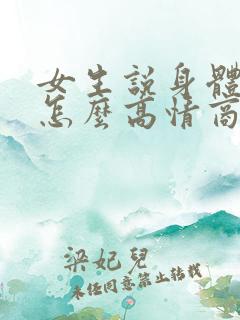 女生說身體
怎麼高情商
梁妃兒
未经同意禁止转载